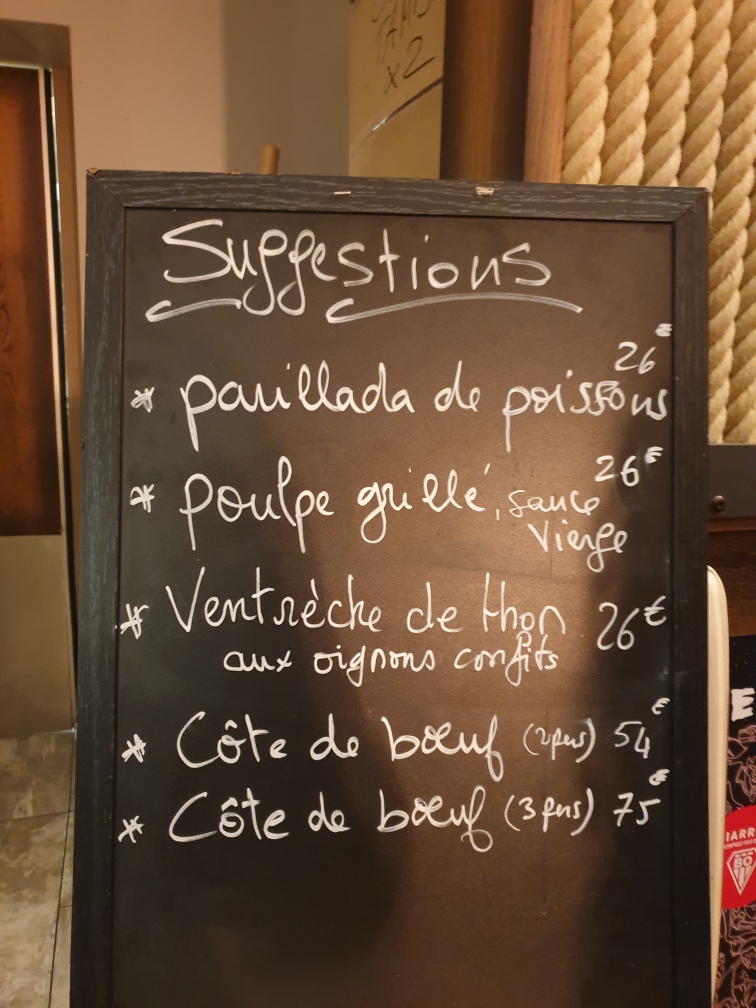 TAMIS
x2
Suggestions
26€
* pauillada de poissons
26€
* poulpe grillé, sauce
Vierge
* Ventrèche de thon 26€
aux oignons confits
* Côte de bœuf (2 pers) 54€
* Côte de bœuf (3 pers) 75€
E
IARR
BO